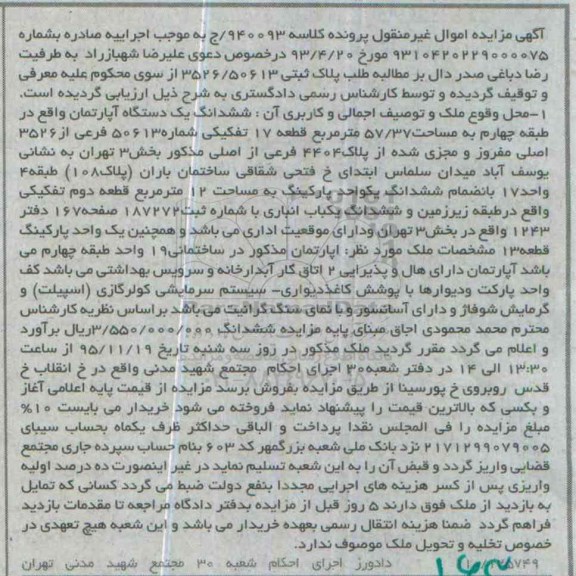 آگهی مزایده اموال غیرمنقول پرونده کلاسه ۹۴۰۰۹۳/ج به موجب اجراییه صادره بشماره
۹۳۱۰۴۲۰۲۲۹۰۰۰۰۷۵ مورخ ۹۳/۴/۲۰ درخصوص دعوی علیرضا شهبازراد به طرفیت
رضا دباغی صدر دال بر مطالبه طلب پلاک ثبتی ۳۵۲۶/۵۰۶۱۳ از سوی محکوم علیه معرفی
و توقیف گردیده و توسط کارشناس رسمی دادگستری به شرح ذیل ارزیابی گردیده است.
۱-محل وقوع ملک و توصیف اجمالی و کاربری آن : ششدانگ یک دستگاه آپارتمان واقع در
طبقه چهارم به مساحت۵۷/۳۷ مترمربع قطعه ۱۷ تفکیکی شماره۵۰۶۱۳ فرعی از۳۵۲۶
اصلی مفروز و مجزی شده از پلاک۴۴۰۴ فرعی از اصلی مذکور بخش۳ تهران به نشانی
یوسف آباد میدان سلماس ابتدای خ فتحی شقاقی ساختمان باران (پلاک۱۰۸) طبقه۴
واحد۱۷ بانضمام ششدانگ یکواحد پارکینگ به مساحت ۱۲ مترمربع قطعه دوم تفکیکی
واقع درطبقه زیرزمین و ششدانگ یکباب انباری با شماره ثبت۱۸۷۲۷۲ صفحه۱۶۷ دفتر
۱۲۴۳ واقع در بخش۳ تهران ودارای موقعیت اداری می باشد و همچنین یک واحد پارکینگ
قطعه۱۳ مشخصات ملک مورد نظر: آپارتمان مذکور در ساختمانی۱۹ واحد طبقه چهارم می
باشد آپارتمان دارای هال و پذیرایی ۲ اتاق کار آبدارخانه و سرویس بهداشتی می باشد کف
واحد پارکت ودیوارها با پوشش کاغذدیواری- سیستم سرمایشی کولرگازی (اسپیلت) و
گرمایش شوفاژ و دارای آسانسور و با نمای سنگ گرانیت می باشد براساس نظریه کارشناس
محترم محمد محمودی اجاق مبنای پایه مزایده ششدانگ ۳/۵۵۰/۰۰۰/۰۰۰ریال برآورد
و اعلام می گردد مقرر گردید ملک مذکور در روز سه شنبه تاریخ ۹۵/۱۱/۱۹ از ساعت
۱۳:۳۰ الی ۱۴ در دفتر شعبه۳۰ اجرای احکام مجتمع شهید مدنی واقع در خ انقلاب خ
قدس روبروی خ پورسینا از طریق مزایده بفروش برسد مزایده از قیمت پایه اعلامی آغاز
و بکسی که بالاترین قیمت را پیشنهاد نماید فروخته می شود خریدار می بایست ۱۰%
مبلغ مزایده را فی المجلس نقدا پرداخت و الباقی حداکثر ظرف یکماه بحساب سیبای
۲۱۷۱۲۹۹۰۷۹۰۰۵ نزد بانک ملی شعبه بزرگمهر کد ۶۰۳ بنام حساب سپرده جاری مجتمع
قضایی واریز گردد و قبض آن را به این شعبه تسلیم نماید در غیر اینصورت ده درصد اولیه
واریزی پس از کسر هزینه های اجرایی مجددا بنفع دولت ضبط می گردد کسانی که تمایل
به بازدید از ملک فوق دارند ۵ روز قبل از مزایده بدفتر دادگاه مراجعه تا مقدمات بازدید
فراهم گردد ضمنا هزینه انتقال رسمی بعهده خریدار می باشد و این شعبه هیچ تعهدی در
خصوص تخلیه و تحویل ملک موصوف ندارد.
دادورز اجرای احکام شعبه ۳۰ مجتمع شهید مدنی تهران